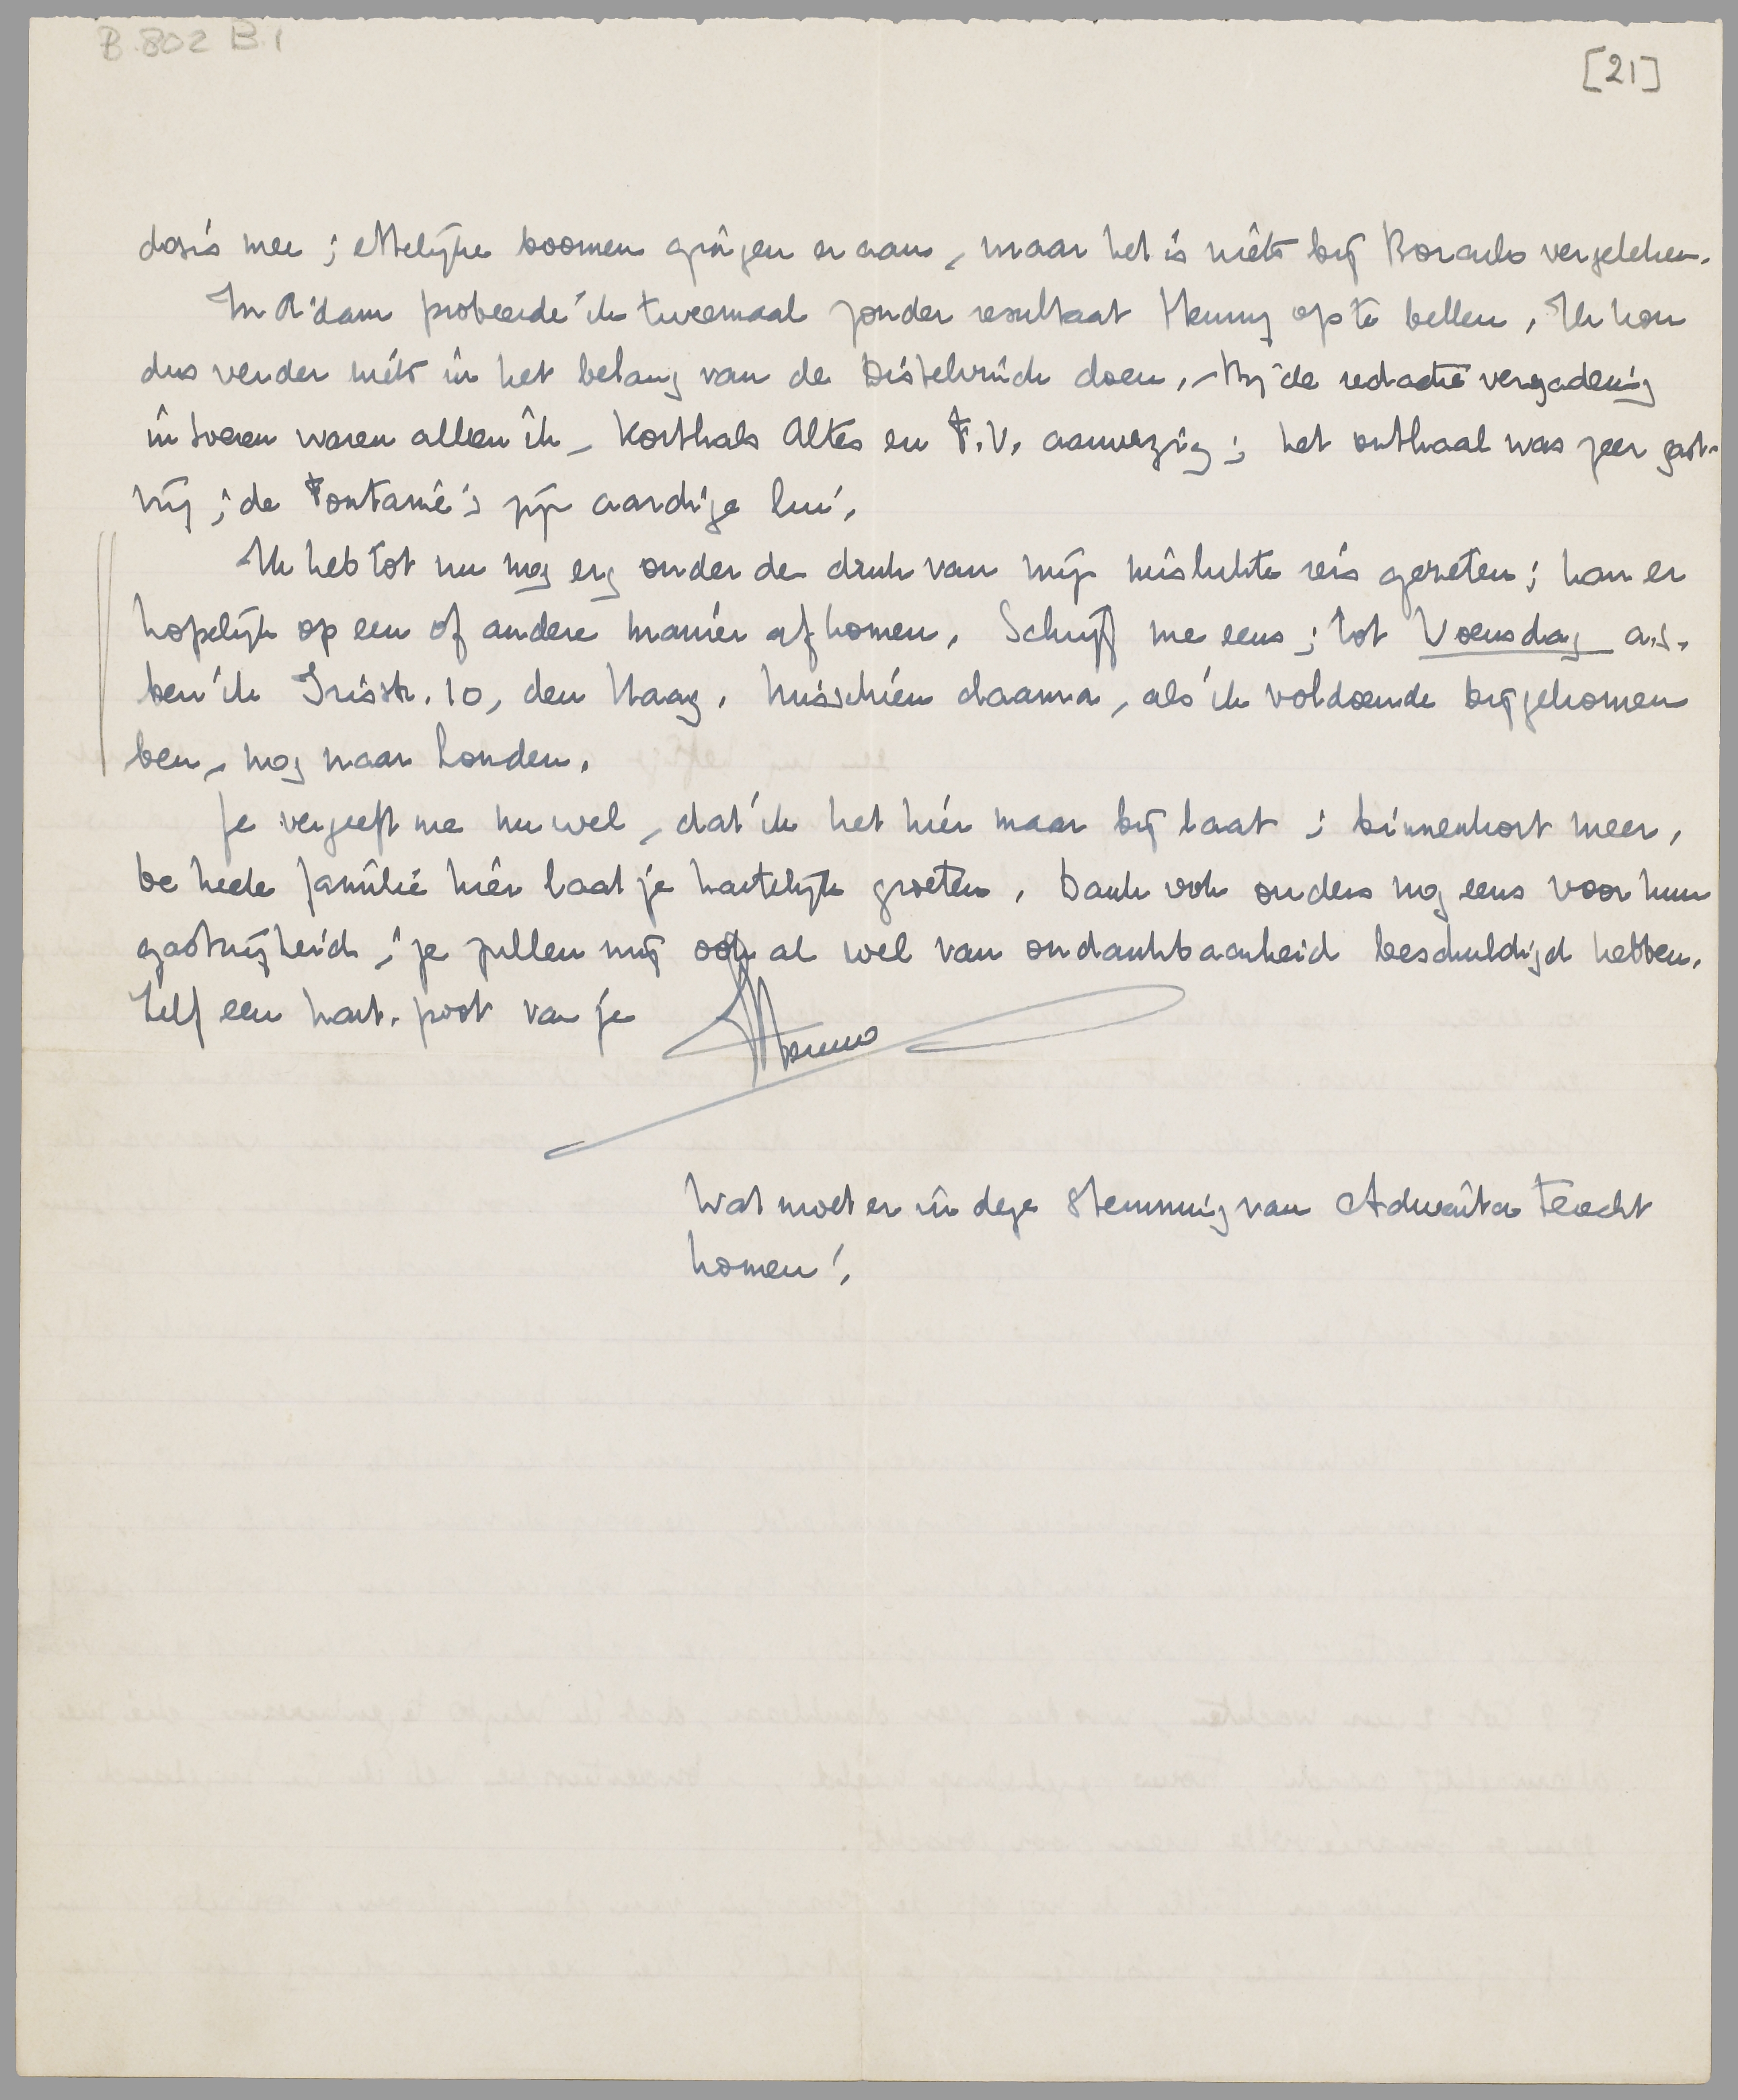 B.802 B.1
[21]
dosis mee; ettelijke boomen gingen er aan, maar het is niets bij Borculo vergeleken.
In A'dam probeerde ik tweemaal zonder resultaat Henny op te bellen. Ik kon
dus verder niets in het belang van de Distelvinck doen. Bij de redactievergadering
in Loenen waren alleen ik, Korthals Altes en F.V. aanwezig; het onthaal was zeer gast-
vrij; de Fontaine's zijn aardige lui.
Ik heb tot nu nog erg onder de druk van mijn mislukte reis gezeten; kan er
hopelijk op een of andere manier af komen. Schrijf me eens; tot Woensdag a.s.
ben ik Irisstr. 10, den Haag. Misschien daarna, als ik voldoende bijgekomen
ben, nog naar Londen.
Je vergeeft me nu wel, dat ik het hier maar bij laat; binnenkort meer.
De heele familie hier laat je hartelijk groeten. Dank ook ouders nog eens voor hun
gastvrijheid; ze zullen mij ook al wel van ondankbaarheid beschuldigd hebben.
Zelf een hart. poot van je
Menno
Wat moet er in deze stemming van Adwaita terecht
komen!